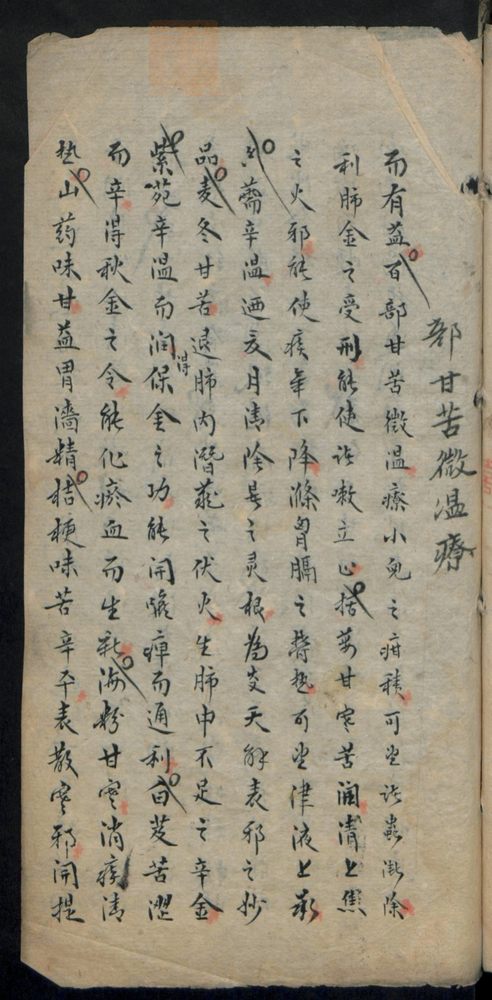 部甘苦微温療
而有益百部甘苦微温療小兒之疳積可望諸蟲漸除
利肺金之受刑能使諸嗽立止括蒌甘寒苦潤清上焦
之火邪能使痰氣下降滌胃膈之欝热可望津液上承
香薷辛温迺夏月清陰暑之灵根為炎天解表邪之妙
品麦冬甘苦退肺内潛藏之伏火生肺中不足之辛金
紫苑辛温而潤得保金之功能開喉痺而通利白芨苦澀
而辛得秋金之令能化瘀血而生新海粉甘寒消痰清
热山药味甘益胃濇精桔梗味苦辛平表散寒邪開提